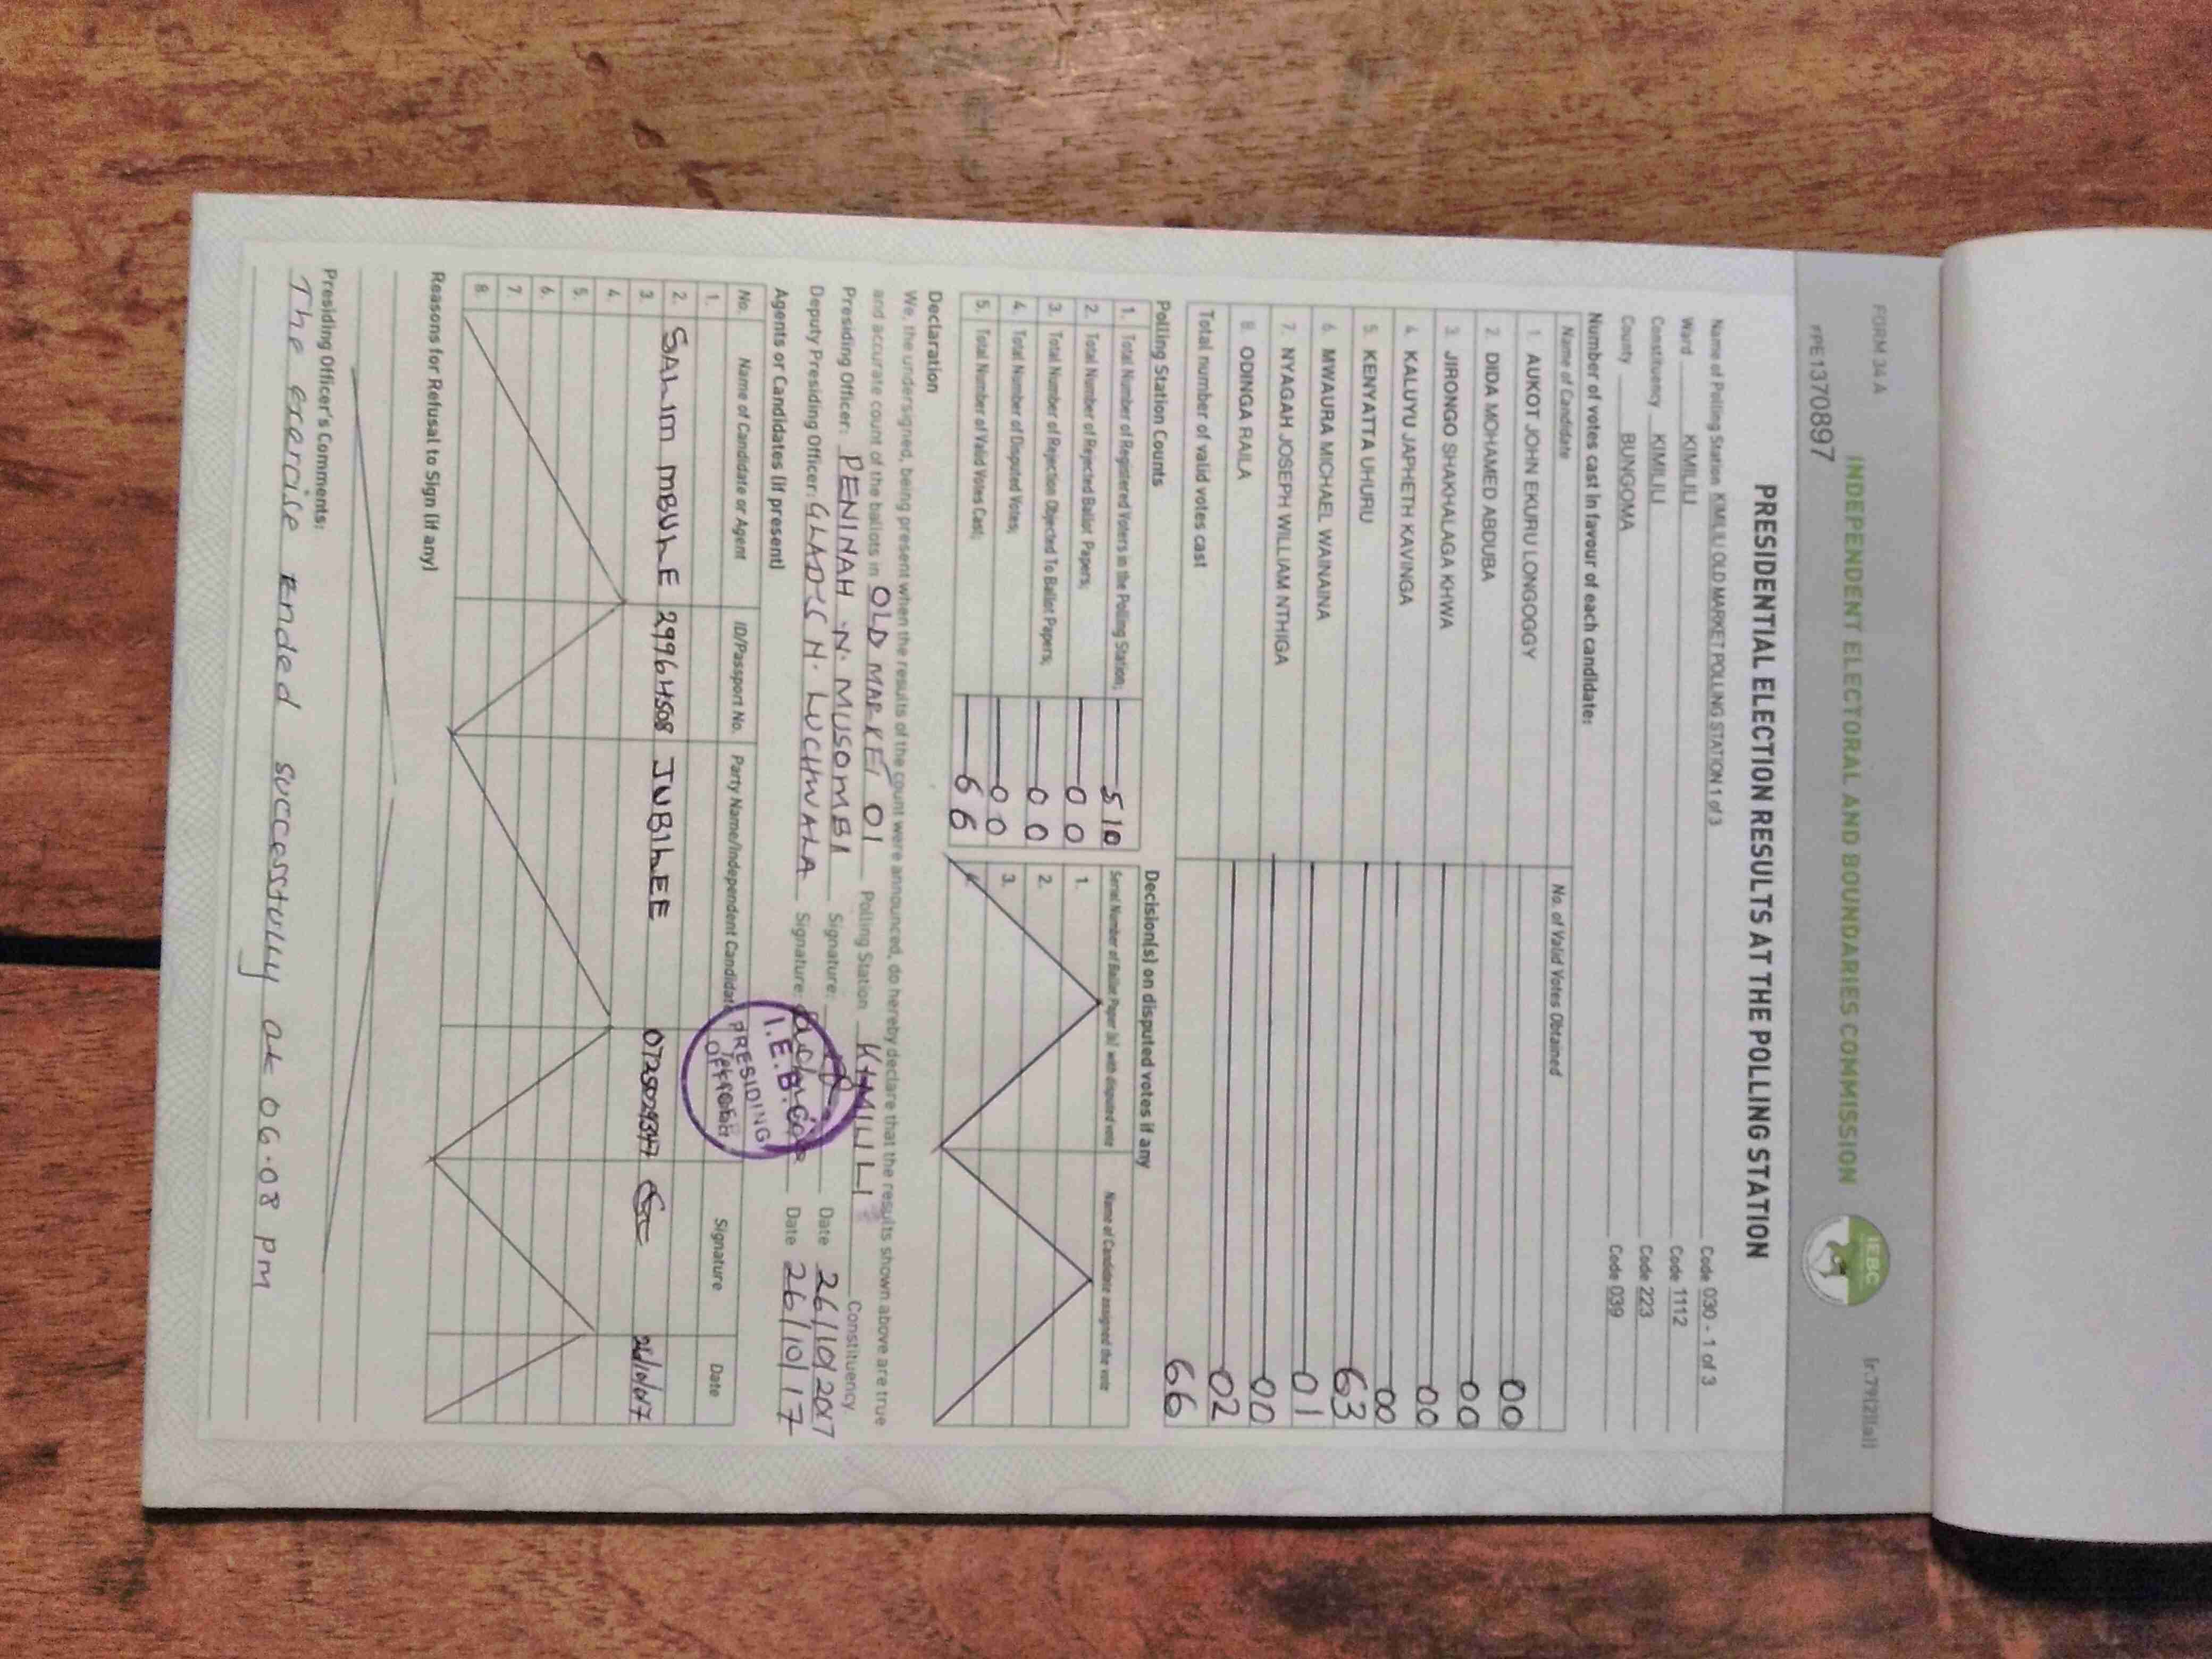 FORM 34 A
INDEPENDENT ELECTORAL AND BOUNDARIES COMMISSION
IEBC
PE1370897
PRESIDENTIAL ELECTION RESULTS AT THE POLLING STATION
Name of Polling Station KIMILILI OLD MARKET POLLING STATION 1 of 3 Code 030 - 1 of 3
Ward KIMILILI Code 1112
Constituency KIMILILI Code 223
County BUNGOMA Code 039
Number of votes cast in favour of each candidate:
Name of Candidate No. of Valid Votes Obtained
1. AUKOT JOHN EKURU LONGOGGY 00
2. DIDA MOHAMED ABDUBA 00
3. JIRONGO SHAKHALAGA KHWA 00
4. KALUYU JAPHETH KAVINGA 00
5. KENYATTA UHURU 63
6. MWAURA MICHAEL WAINAINA 01
7. NYAGAH JOSEPH WILLIAM NTHIGA 00
8. ODINGA RAILA 02
Total number of valid votes cast 66
Polling Station Counts
1. Total Number of Registered Voters in the Polling Station; 510
2. Total Number of Rejected Ballot Papers; 00
3. Total Number of Rejection Objected To Ballot Papers; 00
4. Total Number of Disputed Votes; 00
5. Total Number of Valid Votes Cast; 66
Decision(s) on disputed votes if any
Serial Number of Ballot Paper (s) with disputed vote Name of Candidate assigned the vote
1.
2.
3.
4.
Declaration
We, the undersigned, being present when the results of the count were announced, do hereby declare that the results shown above are true
and accurate count of the ballots in OLD MARKET 01 Polling Station KIMILILI Constituency
Presiding Officer: PENINAH N. MUSOMBA Signature: Date 26/10/2017
Deputy Presiding Officer: GLADYS N. LUCHWALA Signature: Date 26/10/17
I.E.B.C
PRESIDING
OFFICER
Agents or Candidates (if present)
No. Name of Candidate or Agent ID/Passport No. Party Name/Independent Candidate Signature Date
1.
2. SALIM MBULE 29964508 JUBILEE
3.
4.
5.
6.
7.
8.
Reasons for Refusal to Sign (if any)
Presiding Officer's Comments:
The exercise ended successfully at 06.08 PM